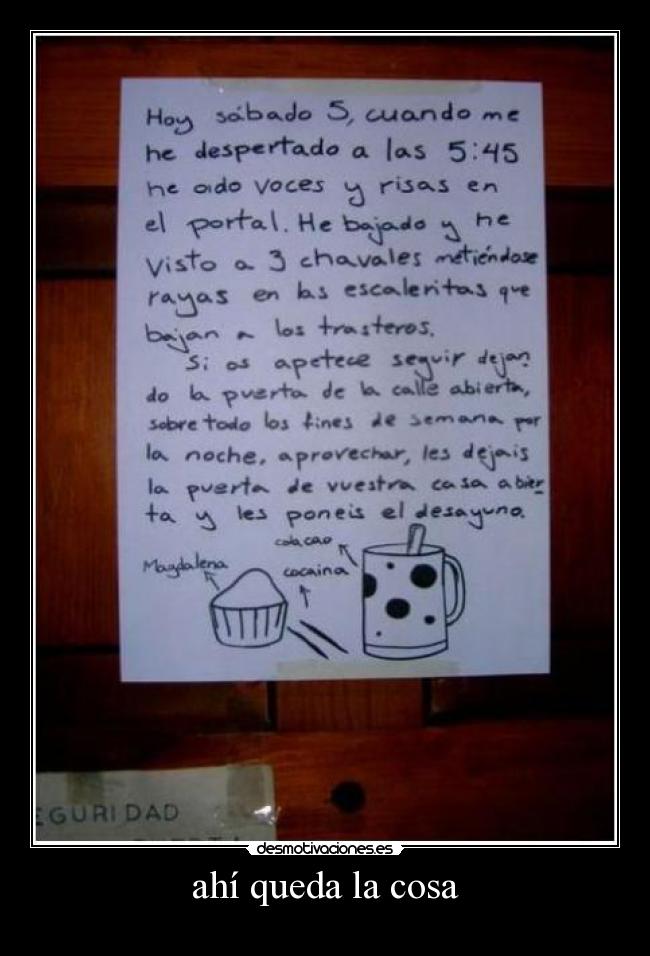 Hoy sábado 5, cuando me
he despertado a las 5:45
he oido voces y risas en
el portal. He bajado y he
visto a 3 chavales metiéndose
rayas en las escaleritas que
bajan a los trasteros.
Si os apetece seguir dejan
do la puerta de la calle abierta,
sobre todo los fines de semana por
la noche, aprovechar, les dejais
la puerta de vuestra casa abier
ta y les poneis el desayuno.
Magdalena
cola cao
cocaina
EGURIDAD
desmotivaciones.es
ahí queda la cosa